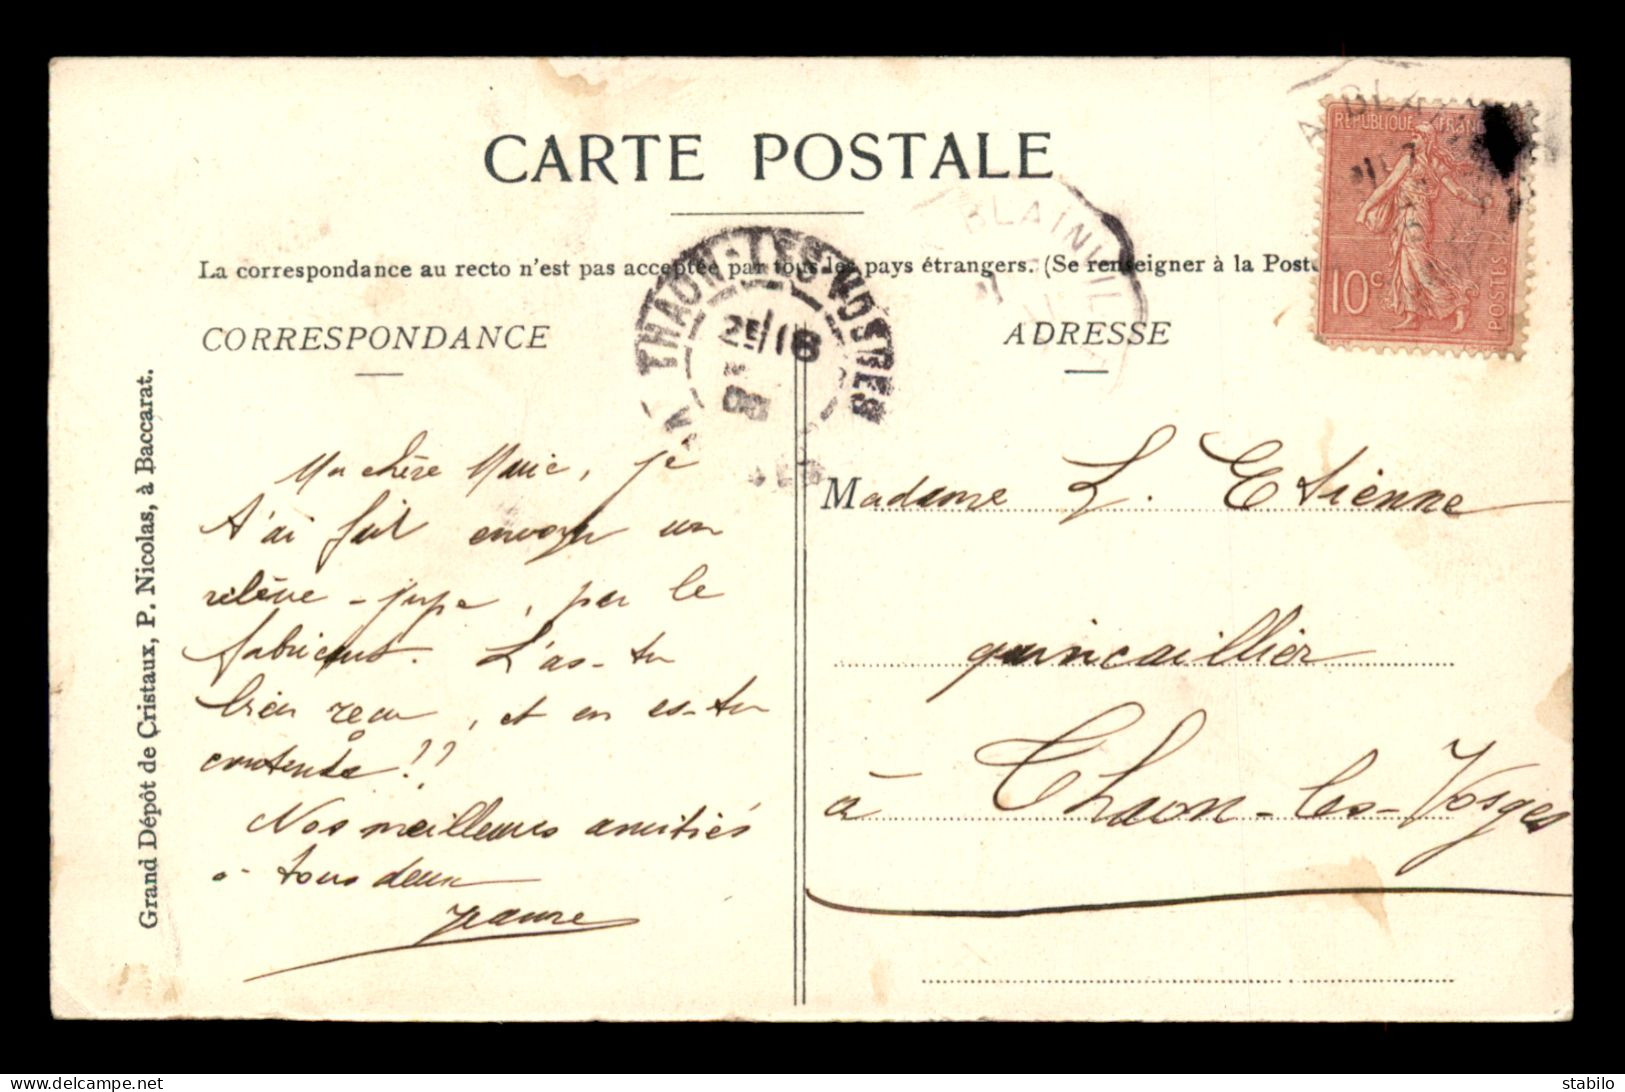 CARTE POSTALE
La correspondance au recto n'est pas acceptée par tous les pays étrangers. (Se renseigner à la Post
CORRESPONDANCE
ADRESSE
Grand Dépôt de Cristaux, P. Nicolas, à Baccarat.
REPUBLIQUE FRANC
10 c
POSTES
BLAINVIL
THAON-LES-VOSGES
Ma chère Marie, je
t'ai fait envoyer un
relève-jupe, par le
fabricant. L'as-tu
bien reçu, et en es-tu
contente!??
Nos meilleures amitiés
à tous deux
Jeanne
Madame L. Etienne
quincaillier
à Thaon-les-Vosges
stabilo